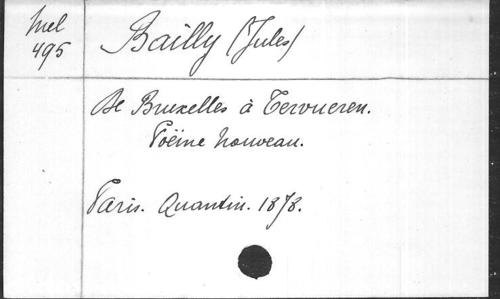 Mel
495
Bailly (Jules)
De Bruxelles à Tervueren.
Poëme nouveau.
Paris. Quantin. 1878.